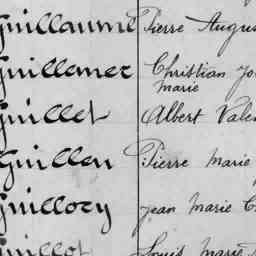 Guillaume Pierre Augus
Guillemer Christian Jo
marie
Guillet Albert Valen
Guillou Pierre Marie
Guillory Jean Marie
Guillot Louis Marie